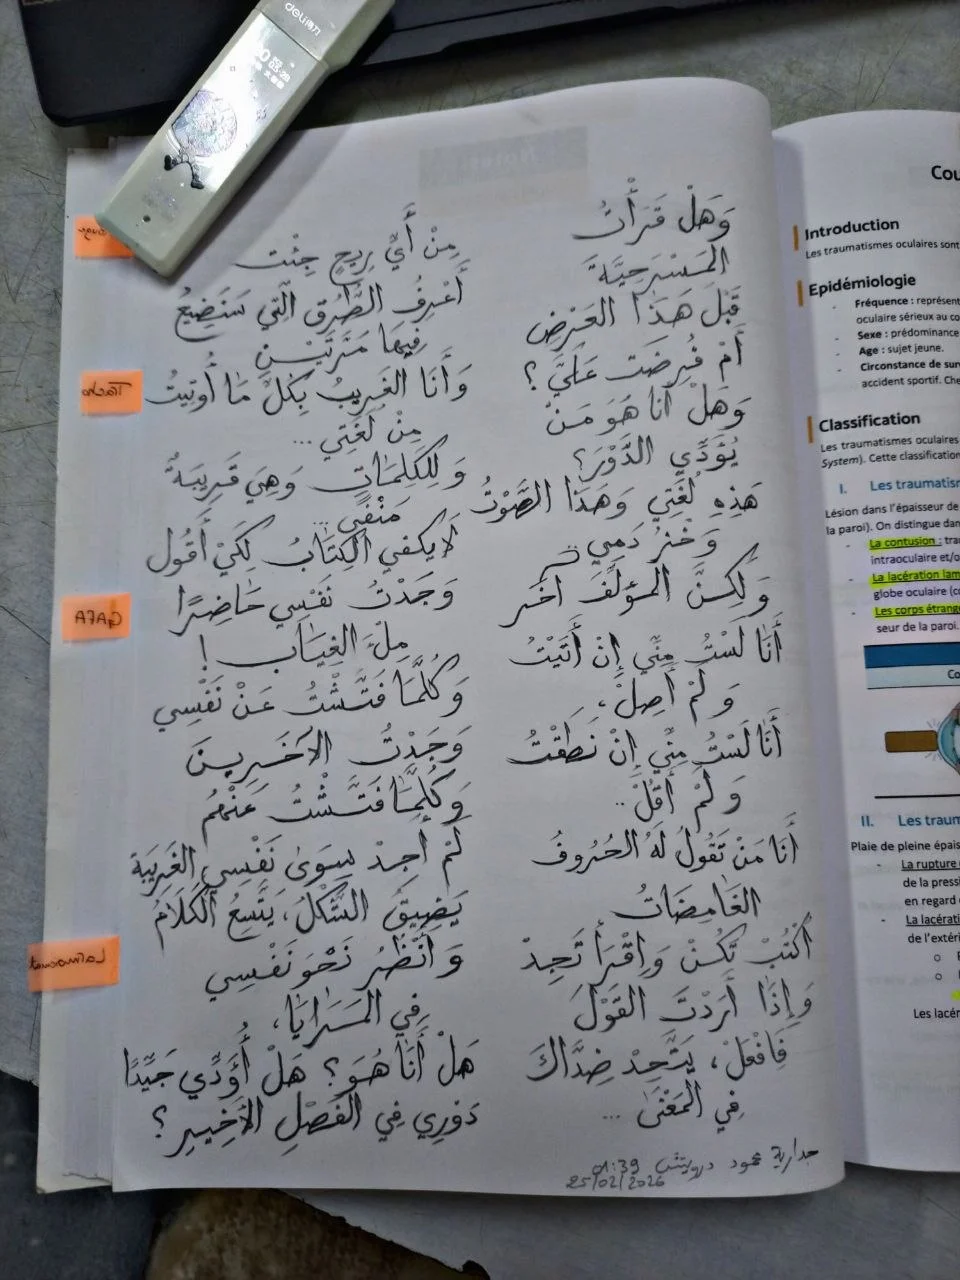 مِنْ أَيِّ رِيحٍ جِئْت
أَعْرِفُ الطُّرُقَ الَّتِي سَنَضِيعُ
فِيهَا مَرَّتَيْنِ
وَأَنَا الغَرِيبُ بِكُلِّ مَا أُوتِيتُ
مِنْ لُغَتِي ...
وَلِلكَلِمَاتِ وَهِيَ قَرِيبَةٌ
مَنْفًى ...
لَا يَكْفِي الكِتَابُ لِكَيْ أَقُول
وَجَدْتُ نَفْسِي حَاضِرًا
مِلْءَ الغِيَابِ !
وَكُلَّمَا فَتَّشْتُ عَنْ نَفْسِي
وَجَدْتُ الآخَرِينَ
وَكُلَّمَا فَتَّشْتُ عَنْهُمُ
لَمْ أَجِدْ سِوَى نَفْسِي الغَرِيبَة
يَضِيقُ الشَّكْلُ، يَتَّسِعُ الكَلَامُ
وَأَنْظُرُ نَحْوَ نَفْسِي
فِي المَرَايَا،
هَلْ أَنَا هُوَ؟ هَلْ أُؤَدِّي جَيِّدًا
دَوْرِي فِي الفَصْلِ الأَخِيرِ؟
وَهَلْ قَرَأْتُ
المَسْرَحِيَّةَ
قَبْلَ هَذَا العَرْضِ
أَمْ فُرِضَت عَلَيَّ؟
وَهَلْ أَنَا هُوَ مَنْ
يُؤَدِّي الدَّوْرَ؟
هَذِهِ لُغَتِي وَهَذَا الصَّوْتُ
وَخْزُ دَمِي..
وَلَكِنَّ المُؤَلِّفَ آخَر
أَنَا لَسْتُ مِنِّي إِنْ أَتَيْتُ
وَلَمْ أَصِلْ،
أَنَا لَسْتُ مِنِّي إِنْ نَطَقْتُ
وَلَمْ أَقُلْ..
أَنَا مَنْ تَقُولُ لَهُ الحُرُوفُ
الغَامِضَاتُ
أُكْتُبْ تَكُنْ وَاقْرَأْ تَجِدْ
وَإِذَا أَرَدْتَ القَوْلَ
فَافْعَلْ، يَتَّحِدْ ضِدَّاكَ
فِي المَعْنَى ...
جدارية محمود درويش 01:39
25/02/2026
deli得力
Tracho
GAFA
Cou
Introduction
Les traumatismes oculaires sont
Epidémiologie
- Fréquence : représent
oculaire sérieux au co
- Sexe : prédominance
- Age : sujet jeune.
- Circonstance de sur
accident sportif. Che
Classification
Les traumatismes oculaires
System). Cette classification
I. Les traumatism
Lésion dans l'épaisseur de
la paroi). On distingue dan
- La contusion : trau
intraoculaire et/o
- La lacération lam
globe oculaire (co
- Les corps étrange
seur de la paroi.
Co
II. Les traum
Plaie de pleine épais
- La rupture
de la pressi
en regard
- La lacérati
de l'extéri
Les lacér